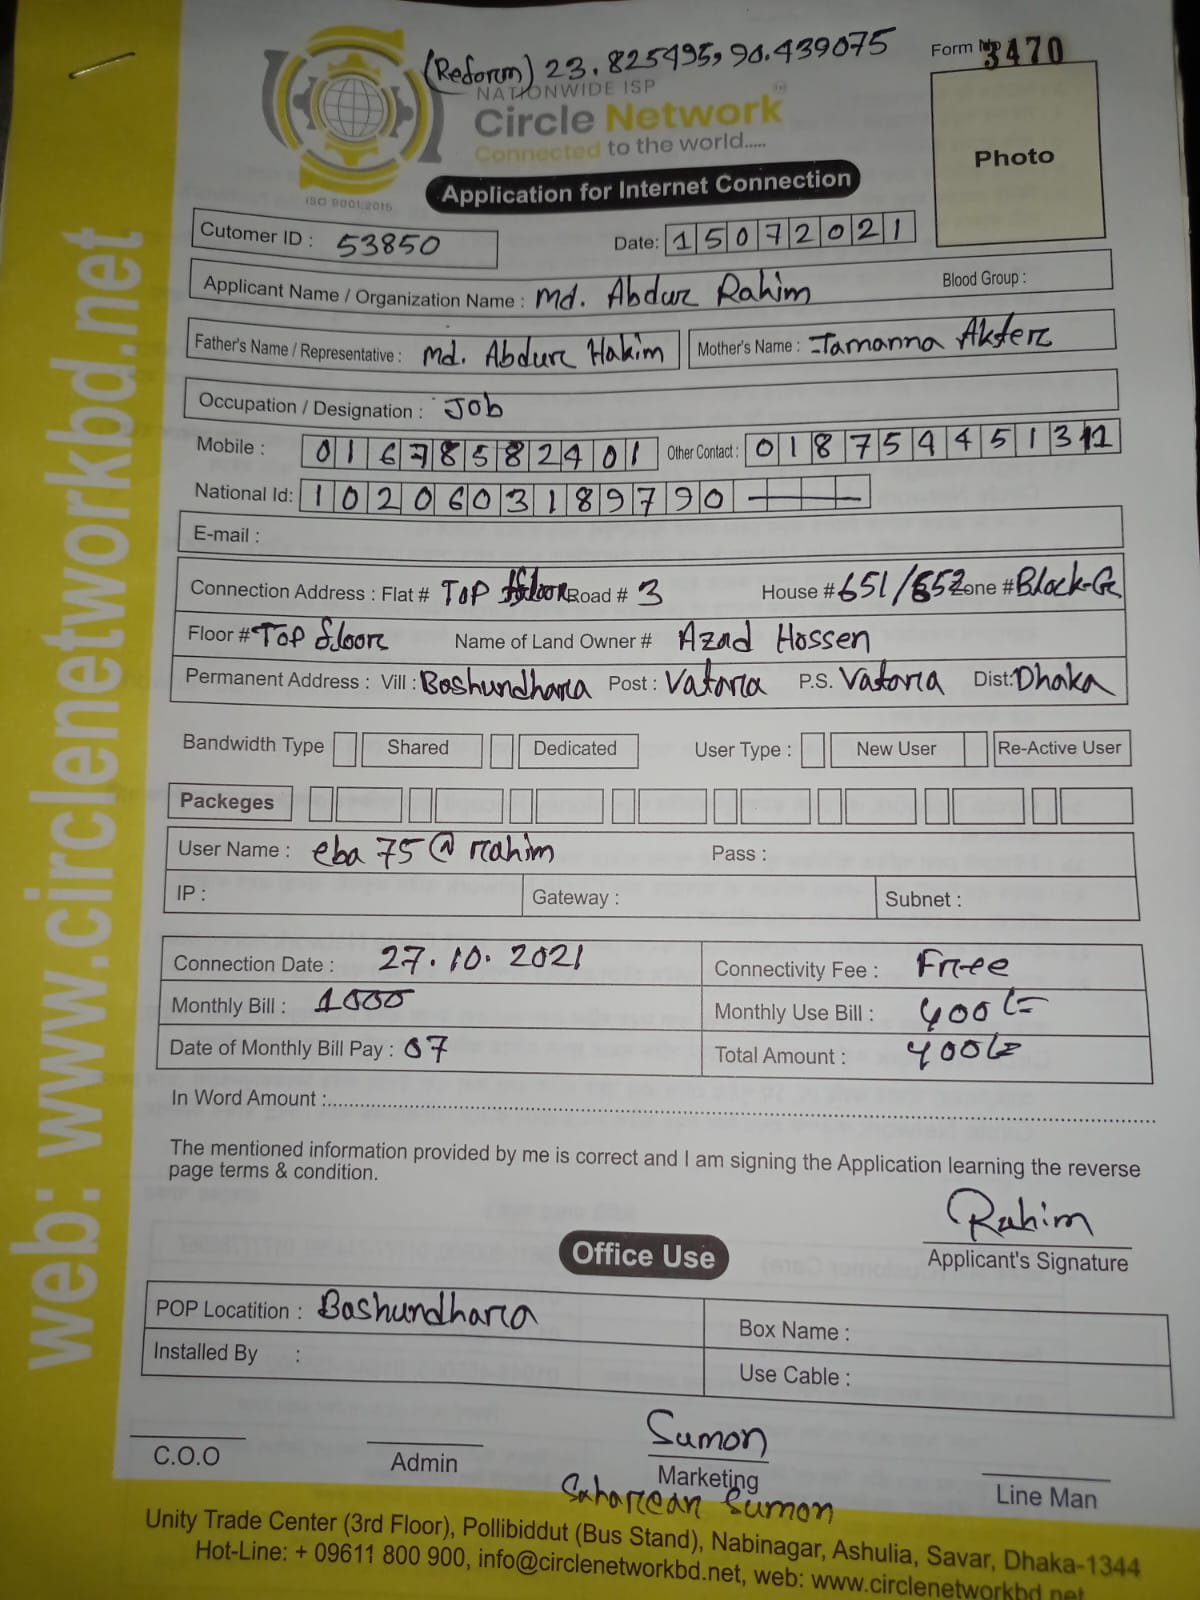 (Reform) 23.825495, 90.439075
Form No 3470
NATIONWIDE ISP
Circle Network
Connected to the world.....
ISO 9001:2015
Photo
Application for Internet Connection
Cutomer ID : 53850
Date: 15072021
Applicant Name / Organization Name : Md. Abdur Rahim Blood Group :
Father's Name / Representative : Md. Abdur Hakim Mother's Name : Tamanna Akter
Occupation / Designation : Job
Mobile : 01678582401 Other Contact :
National Id: 1020603189790
E-mail :
Connection Address : Flat # Top floor Road # 3 House # 651/652 Zone # Block-G
Floor # Top floor Name of Land Owner # Azad Hossen
Permanent Address : Vill : Bashundhara Post : Vatara P.S. Vatara Dist: Dhaka
Bandwidth Type Shared Dedicated User Type : New User Re-Active User
Packeges
User Name : eba 75@rahim Pass :
IP : Gateway : Subnet :
Connection Date : 27.10.2021 Connectivity Fee : Free
Monthly Bill : 1000 Monthly Use Bill : 400/=
Date of Monthly Bill Pay : 07 Total Amount : 400/=
In Word Amount :
The mentioned information provided by me is correct and I am signing the Application learning the reverse
page terms & condition.
Rahim
Applicant's Signature
Office Use
POP Locatition : Bashundhara Box Name :
Installed By : Use Cable :
Sumon
C.O.O Admin Marketing Line Man
Sumon
Unity Trade Center (3rd Floor), Pollibiddut (Bus Stand), Nabinagar, Ashulia, Savar, Dhaka-1344
Hot-Line: + 09611 800 900, info@circlenetworkbd.net, web: www.circlenetworkbd.net
web: www.circlenetworkbd.net